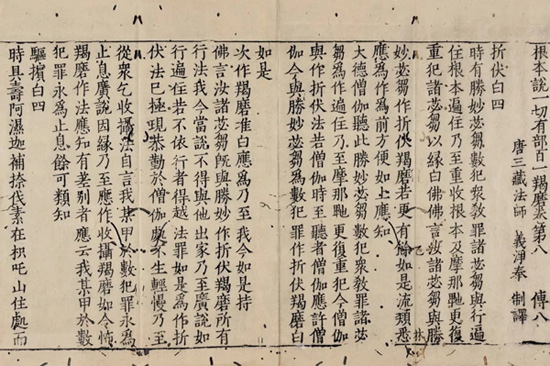 根本說一切有部百一羯磨卷第八 傳八
唐三藏法師 義淨奉 制譯
折伏白四
時有勝妙苾芻數犯眾教罪諸苾芻與行遍
住根本遍住乃至重收根本及摩那馳更復
重犯諸苾芻以緣白佛佛言汝諸苾芻與勝
妙苾芻作折伏羯磨若更有餘如是流類悉
應為作為前方便如上應知
大德僧伽聽此勝妙苾芻數犯眾教罪諸苾
芻為作遍住乃至摩那馳更復重犯今僧伽
與作折伏法若僧伽時至聽者僧伽應許僧
伽今與勝妙苾芻作折伏羯磨白
如是
次作羯磨准白應為乃至我今如是持
佛言汝諸苾芻既與勝妙作折伏羯磨所有
行法我今當說不得與他出家乃至廣說如
行遍住若不依行者得越法罪如是為作折
伏法已極現恭勤於僧伽處不生輕慢乃至
從眾乞收攝法自言我某甲於數犯罪永為
止息廣說因緣乃至應作收攝羯磨如令怖
羯磨作法應知有差別者應云我某甲於數
犯罪永為止息餘可類知
驅擯白四
時具壽阿濕迦補捺伐素在枳吒山住處而